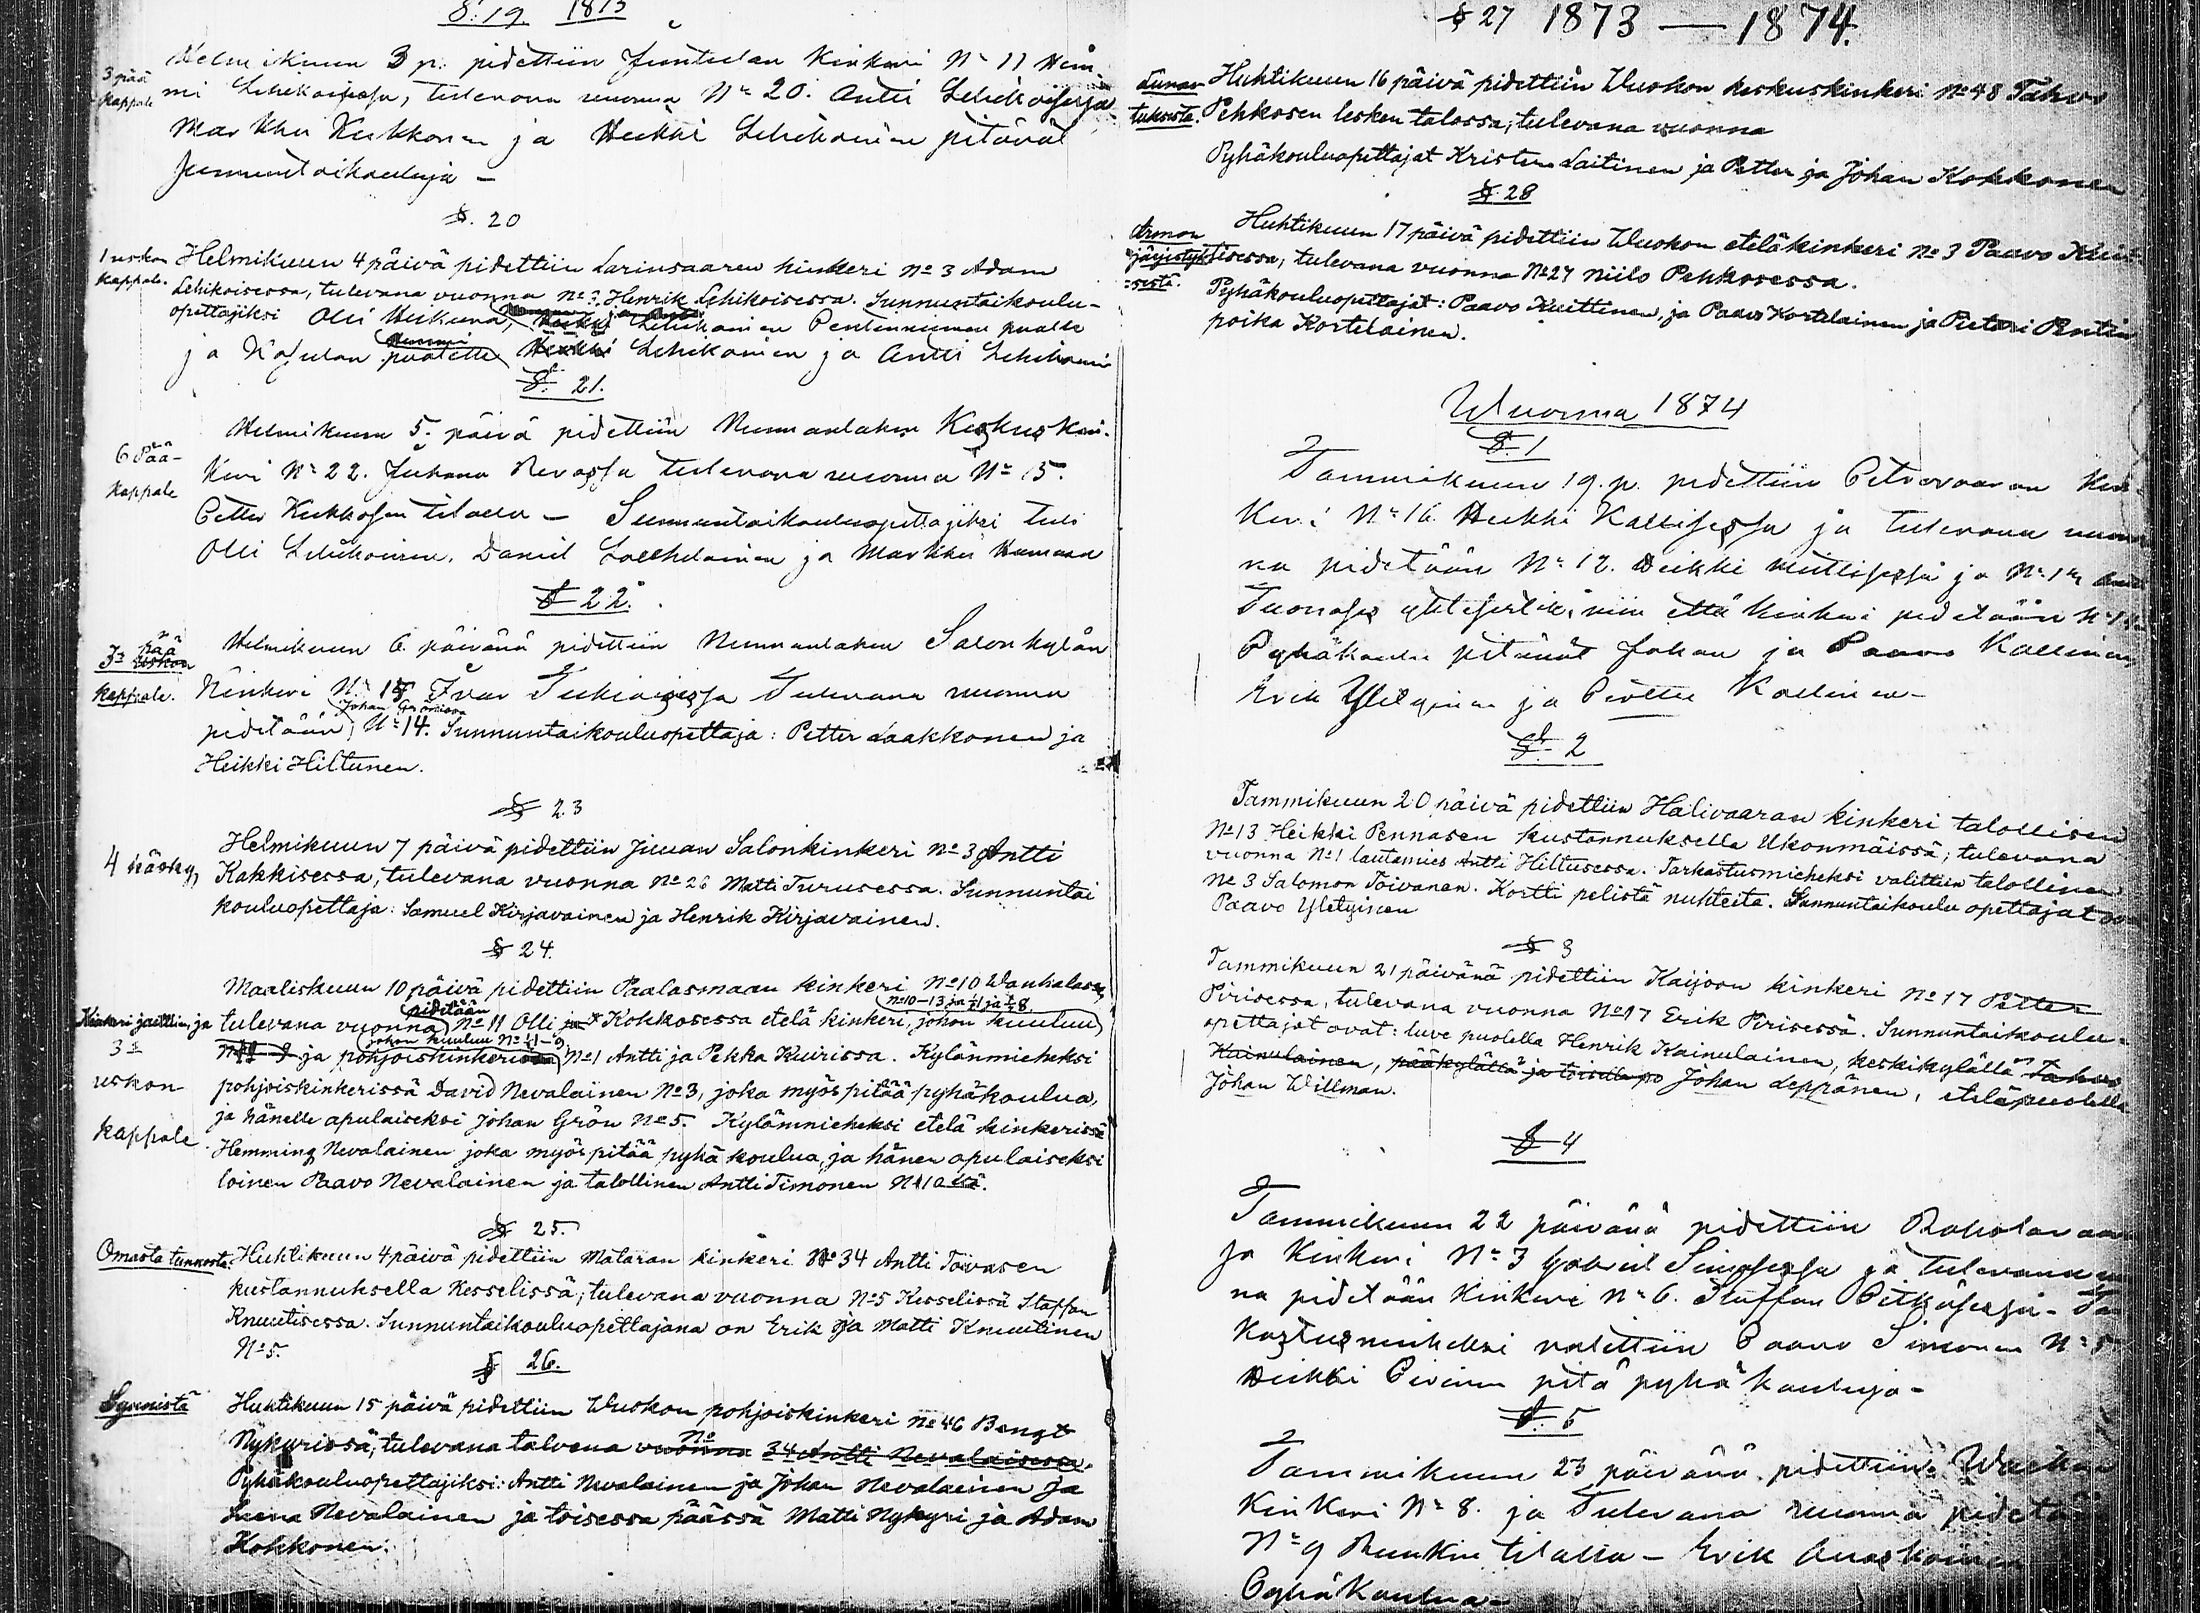 §. 19. 1873
Helmikuun 3 p. pidettiin Juntulan Kinkeri Nr 11 Hem-
3 pää kappale
mi Lehikoisessa, tulevana vuonna Nr 20. Antti Lehikoisessa
Markku Kukkonen ja Heikki Lehikoinen pitävät
sunnuntaikouluja –
§. 20
1 uskon kappale.
Helmikuun 4 päivä pidettiin Larinsaaren kinkeri No 3 Adam
Lehikoisessa, tulevana vuonna No 3. Henrik Lehikoisessa. Sunnuntaikoulu-
opettajiksi Olli Heikura, Heikki Lehikoinen Pentinniemen puolelle
ja puolelle Hemmi Heikki Lehikoinen ja Antti Lehikoinen
§. 21.
6 Pää-
kappale
Helmikuun 5. päivä pidettiin Nunnanlahen Keskuskin-
keri Nr 22. Juhana Revossa tulevana vuonna Nr 15.
Petter Kukkosen talossa – Sunnuntaikouluopettajiksi tuli
Olli Lehikoinen, Daniel ja Markku
§ 22.
3s pää uskon
kappale.
Helmikuun 6 päivänä pidettiin Nunnanlahen Salonkylän
Kinkeri Nr 15 Ivar Tulevana vuonna
Johan
pidetään Nr 14. Sunnuntaikouluopettaja: Petter Laakkonen ja
Heikki Hiltunen.
§ 23
4 käsky,
Helmikuun 7 päivä pidettiin Juuan Salonkinkeri No 3 Antti
Kakkisessa, tulevana vuonna No 26 Matti Turusessa. Sunnuntai
kouluopettaja: Samuel Kirjavainen ja Henrik Kirjavainen.
§ 24.
Maaliskuun 10 päivä pidettiin Paalasmaan kinkeri No 10 Wanhalassa,
pidetään No 10–13 ja
Kinkeri jaettiin, ja tulevana vuonna No 11 Olli Kokkosessa etelä kinkeri, johon kuuluu
johon kuuluu No 1–9
3s
ja pohjoiskinkerissä No 1 Antti ja Pekka Kuirissa. Kylänmieheksi
uskon
pohjoiskinkerissä David Nevalainen No 3, joka myös pitää pyhäkoulua,
ja hänelle apulaiseksi Johan Grön No 5. Kylämnieheksi etelä kinkerissä
kappale.
Hemming Nevalainen joka myös pitää pyhä koulua, ja hänen apulaiseksi
loinen Paavo Nevalainen ja talollinen Antti Timonen No 10
§ 25.
Omasta tunnosta.
Huhtikuun 4 päivä pidettiin Mataran kinkeri No 34 Antti Toivasen
kustannuksella Kesselissä; tulevana vuonna No 5 Kesselissä Staffan
Knuutisessa. Sunnuntaikouluopettajana on Erik ja Matti Knuutinen
No 5.
§ 26.
Synnistä
Huhtikuun 15 päivä pidettiin Wuokon pohjoiskinkeri No 46 Bengt
Nykyrissä, tulevana talvena vuonna No 34 Antti Nevalaisessa.
Pyhäkouluopettajiksi: Antti Nevalainen ja Johan Nevalainen ja
Nevalainen ja toisessa päässä Matti Nykyri ja Adam
Kokkonen.
§ 27 1873 — 1874.
Lunas-
tuksesta.
Huhtikuun 16 päivä pidettiin Wuokon keskuskinkeri No 48 Tahvo
Pehkosen lesken talossa; tulevana vuonna
Pyhäkouluopettajat Kristian Laitinen ja Petter ja Johan Kokkonen
§ 28
Armon
järjestyk-
sestä.
Huhtikuun 17 päivä pidettiin Wuokon eteläkinkeri No 3 Paavo Kuit-
tisessa, tulevana vuonna No 27 Niilo Pehkosessa.
Pyhäkouluopettajat: Paavo Kuittinen, ja Paavo Kortelainen ja Pietari Pentin
poika Kortelainen.
Wuonna 1874
§. 1
Tammikuun 19. p. pidettiin Petrovaaran Kin-
keri Nr 16. Heikki Kallisessa ja tulevana vuon-
na pidetään Nr 12. Heikki ja Nr
niin että kinkeri pidetään Nr
Pyhäkoulua pitävät Johan ja Paavo Kallinen,
Erik Yletyinen ja Kallinen –
§. 2
Tammikuun 20 päivä pidettiin Halivaaran kinkeri talollisen
No 13 Heikki Pennasen kustannuksella Ukonmäissä; tulevana
vuonna No 1 lautamies Antti Hiltusessa. Tarkastusmieheksi valittiin talollinen
No 3 Salomon Toivanen. Kortti pelistä nuhteita. Sunnuntaikoulu opettajat
Paavo Yletyinen
§ 3
Tammikuun 21 päivänä pidettiin Kaijoon kinkeri No 17 Petter
Pirisessa, tulevana vuonna No 17 Erik Pirisessä. Sunnuntaikoulu-
opettajat ovat: luve puolella Henrik Kainulainen, keskikylällä Tahvo
Kainulainen, pääkylällä ja toisella po Johan Leppänen, eteläpuolella
Johan Willman.
§ 4
Tammikuun 22 päivänä pidettiin
ja Kinkeri Nr 3 Gabriel Simosessa ja tulevana vuon-
na pidetään Kinkeri Nr 6. Staffan Pitkäsessä – Tar-
kastusmieheksi valittiin Paavo Simonen Nr 5
Heikki Pirinen pitä pyhä kouluja –
§. 5
Tammikuun 23 päivänä pidettiin
Kinkeri Nr 8. ja Tulevana vuonna pidetä
Nr 9 talossa – Erik
Pyhäkoulua –